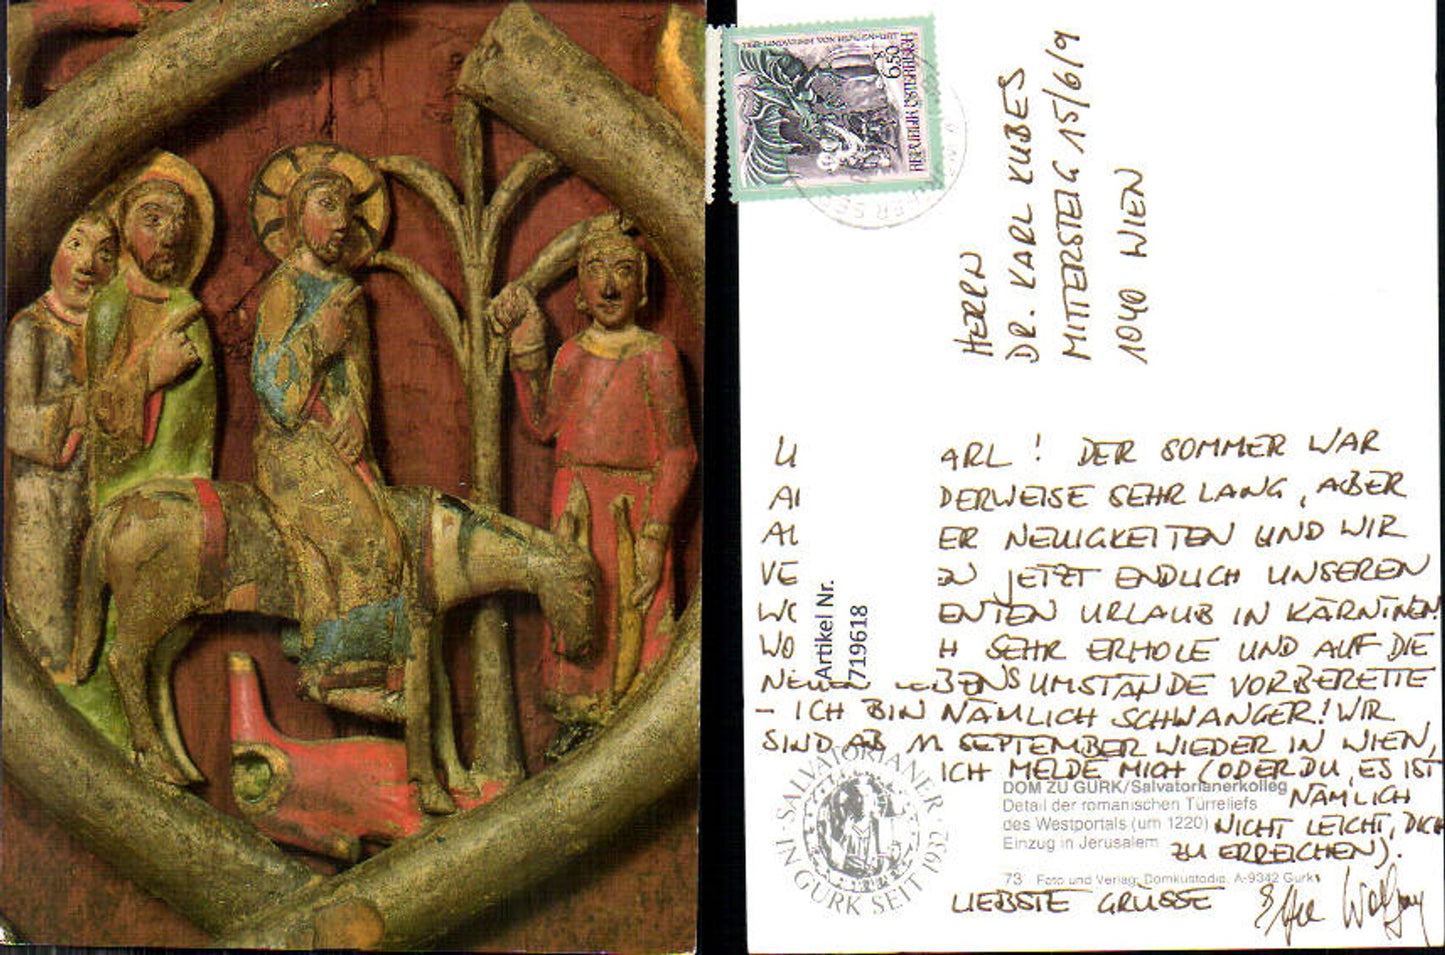 6.50
REPUBLIK ÖSTERREICH
HERRN
DR. KARL KUBES
MITTERSTEIG 15/6/9
1040 WIEN
ARL! DER SOMMER WAR
DERWEISE SEHR LANG, ABER
ER NEUIGKEITEN UND WIR
VE JETZT ENDLICH UNSEREN
ENTEN URLAUB IN KÄRNTEN.
WO H SEHR ERHOLE UND AUF DIE
NEUEN LEBENSUMSTÄNDE VORBEREITE
- ICH BIN NÄMLICH SCHWANGER! WIR
SIND AB 11. SEPTEMBER WIEDER IN WIEN,
ICH MELDE MICH (ODER DU, ES IST
NÄMLICH
NICHT LEICHT, DICH
ZU ERREICHEN).
LIEBSTE GRÜSSE
Wolfgang
Artikel Nr.
719618
SALVATORIANER · IN GURK SEIT 1932 ·
DOM ZU GURK/Salvatorianerkolleg
Detail der romanischen Türreliefs
des Westportals (um 1220)
Einzug in Jerusalem
73 Foto und Verlag: Domkustodie, A-9342 Gurk